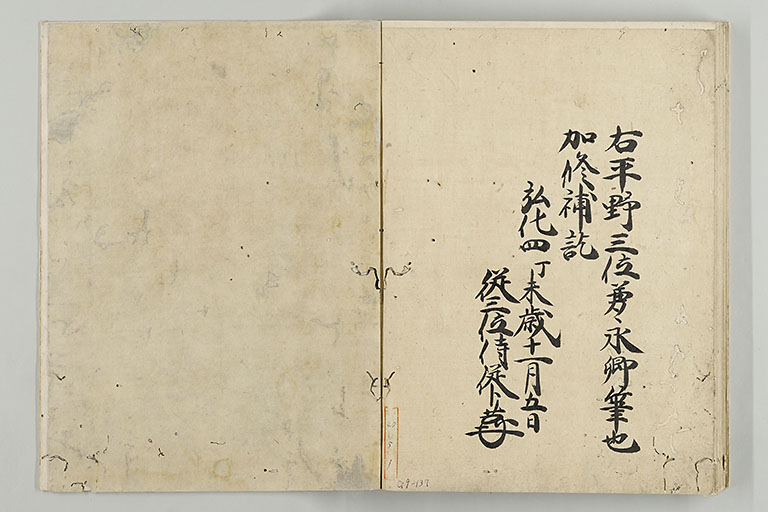 右平野三位兼永卿筆也
加修補訖
弘化四丁未歳十一月五日
従三位侍従卜